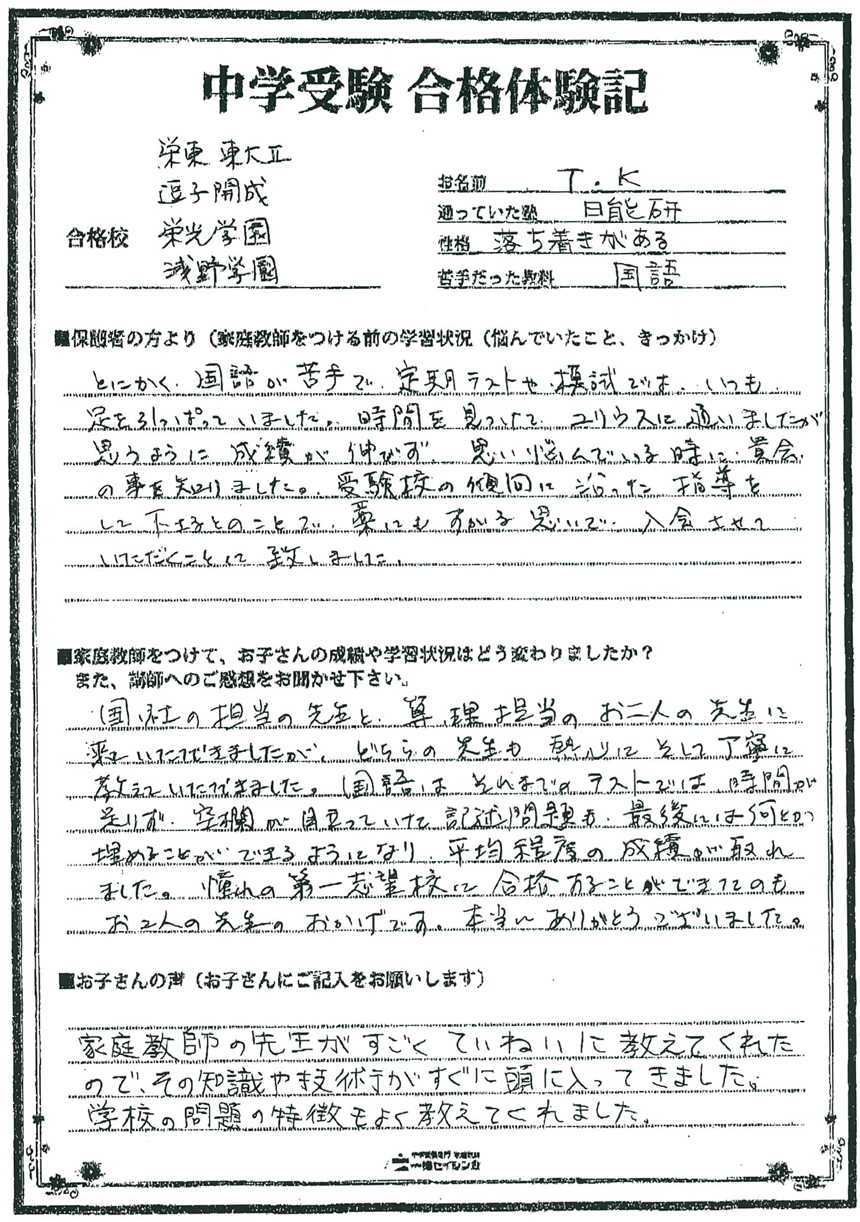 中学受験 合格体験記
合格校
栄東 東大Ⅱ
逗子開成
栄光学園
浅野学園
お名前 T.K
通っていた塾 日能研
性格 落ち着きがある
苦手だった教科 国語
■保護者の方より（家庭教師をつける前の学習状況（悩んでいたこと、きっかけ）
とにかく、国語が苦手で、定期テストや模試では、いつも
足を引っぱっていました。時間を見つけて、ユリウスに通いましたが
思うように成績が伸びず、思い悩んでいる時に、貴会
の事を知りました。受験校の傾向に沿った指導を
して下さるとのことで、藁にもすがる思いで、入会させて
いただくことに致しました。
■家庭教師をつけて、お子さんの成績や学習状況はどう変わりましたか？
また、講師へのご感想をお聞かせ下さい。
国、社の担当の先生と、算、理担当のお二人の先生に
来ていただきましたが、どちらの先生も熱心にそして丁寧に
教えていただきました。国語は、それまでのテストでは時間が
足りず、空欄が目立っていた記述問題も、最後には何とか
埋めることができるようになり、平均程度の成績が取れ
ました。憧れの第一志望校に合格することができたのも
お2人の先生のおかげです。本当にありがとうございました。
■お子さんの声（お子さんにご記入をお願いします）
家庭教師の先生がすごくていねいに教えてくれた
ので、その知識や技術がすぐに頭に入ってきました。
学校の問題の特徴もよく教えてくれました。